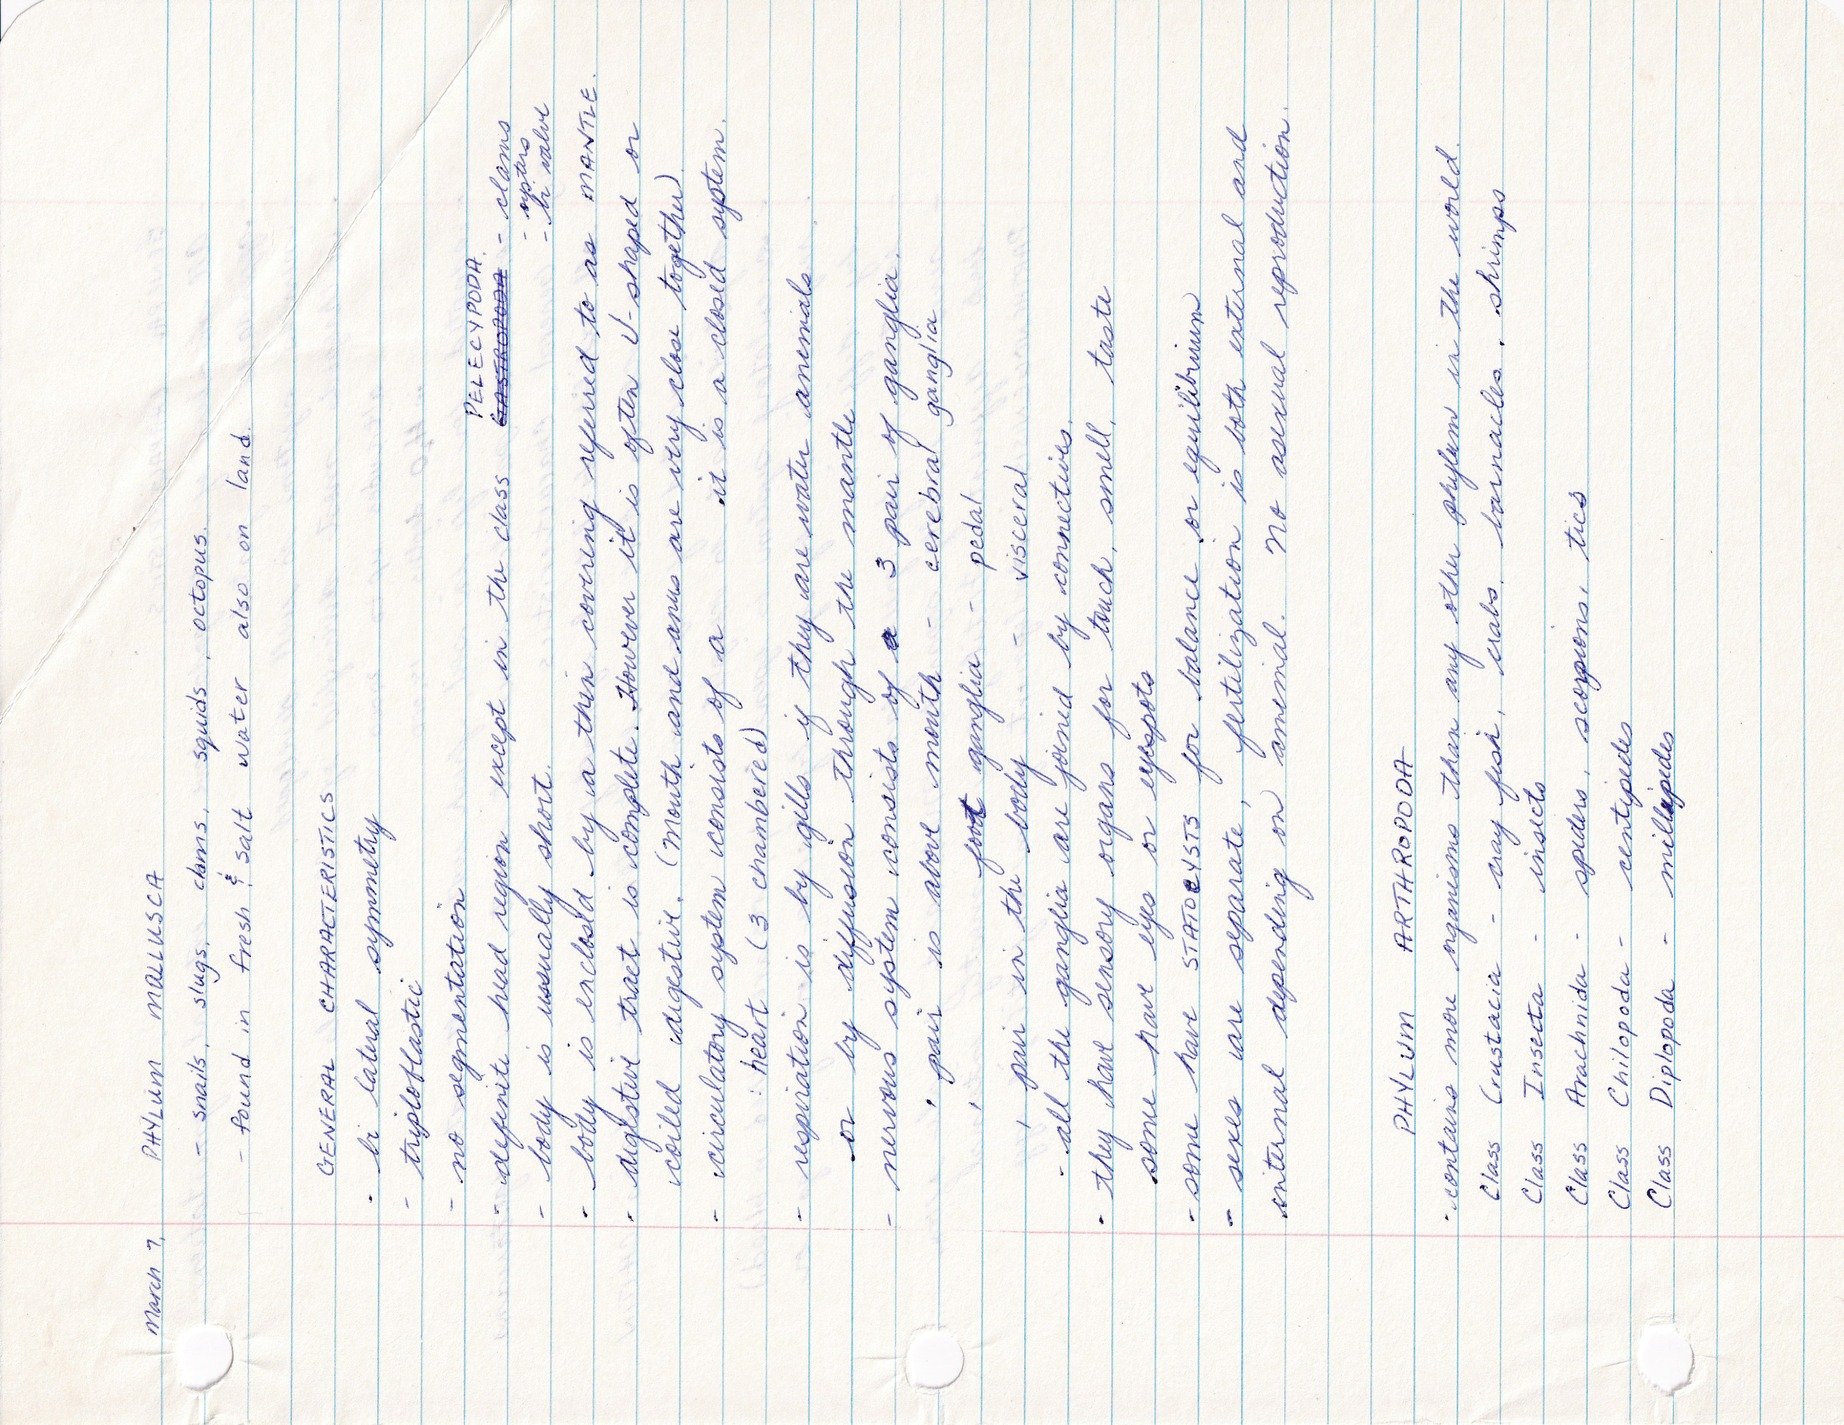 March 7,
PHYLUM MOLLUSCA
- snails, slugs, clams, squids, octopus.
- found in fresh & salt water also on land.
GENERAL CHARACTERISTICS
- bi lateral symmetry
- triploflastic
- no segmentation
- definite head region except in the class GASTROPODA PELECYPODA. - clams
- oysters
- bi valve
- body is usually short.
- body is enclosed by a thin covering referred to as MANTLE.
- digestive tract is complete. However it is often U-shaped or
coiled digestive. (mouth and anus are very close together)
- circulatory system consists of a it is a closed system.
heart (3 chambered)
- respiration is by gills if they are water animals
or by diffusion through the mantle
- nervous system consists of a 3 pair of ganglia.
, pair is above mouth - cerebral ganglia
, foot ganglia - pedal
, pair in the body - visceral
- all the ganglia are joined by connectives.
- they have sensory organs for touch, smell, taste
some have eyes or eyespots
- some have STATOCYSTS for balance or equilibrium
- sexes are separate, fertilization is both external and
internal depending on animal. No asexual reproduction.
PHYLUM ARTHROPODA
- contains more organisms than any other phylum in the world.
Class Crustacia - cray fish, crabs, barnacles, shrimps
Class Insecta - insects
Class Arachnida - spiders, scorpions, tics
Class Chilopoda - centipedes
Class Diplopoda - millipedes